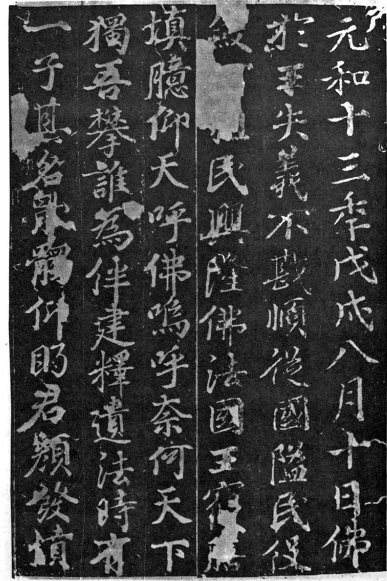 元和十三季戊戌八月十日佛
於王失義不戡順從國隘民役
民興隆佛法國王
填臆仰天呼佛嗚呼奈何天下
獨吾攀誰為伴建釋遺法時有
一子其名髑仰眄君顏發憤